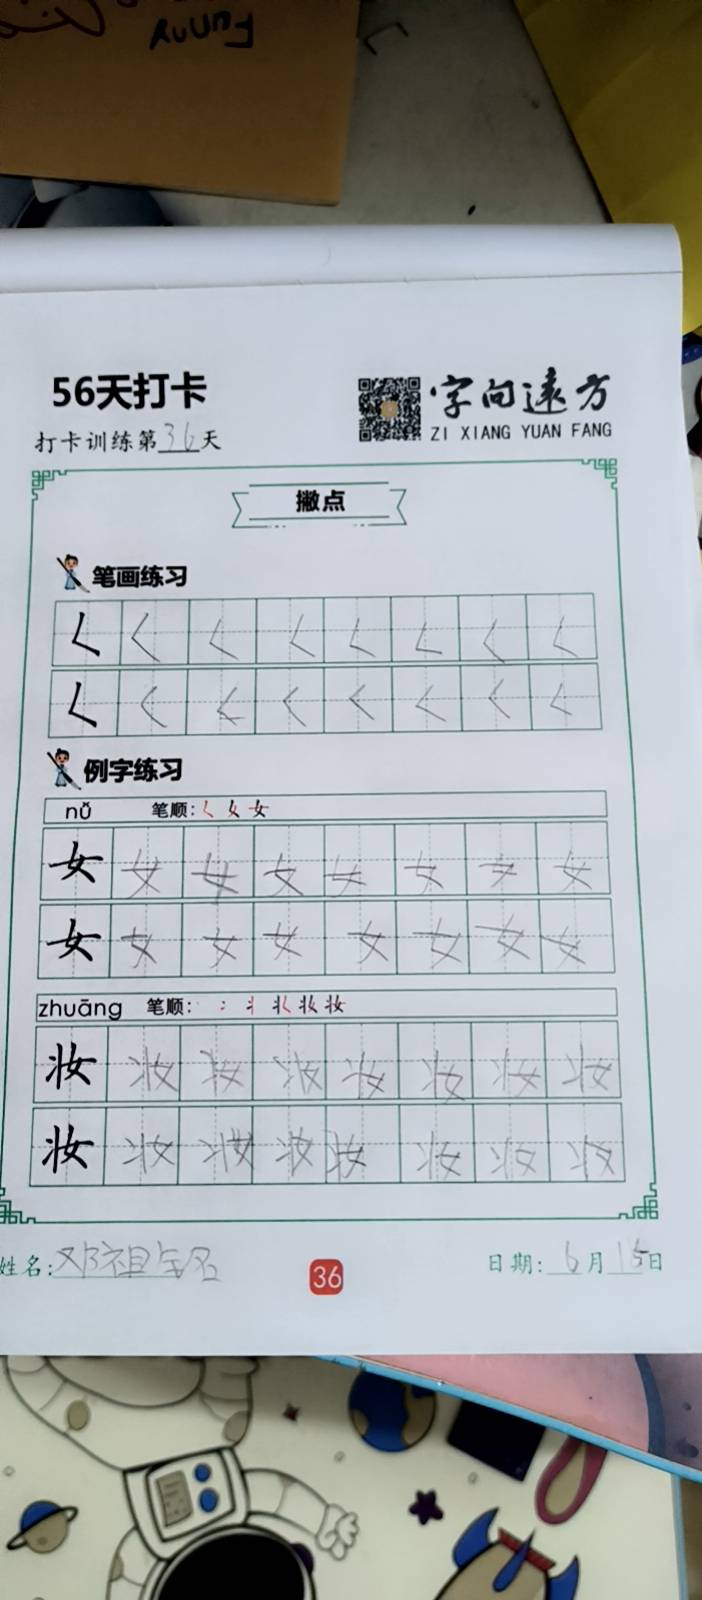 Funny
56天打卡
字向遠方
打卡训练第36天
ZI XIANG YUAN FANG
撇点
笔画练习
𡿨 𡿨 𡿨 𡿨 𡿨 𡿨 𡿨 𡿨
𡿨 𡿨 𡿨 𡿨 𡿨 𡿨 𡿨 𡿨
例字练习
nǚ 笔顺: 𡿨 女 女
女 女 女 女 女 女 女 女
女 女 女 女 女 女 女 女
zhuāng 笔顺: 丶 冫 丬 妆 妆
妆 妆 妆 妆 妆 妆 妆 妆
妆 妆 妆 妆 妆 妆 妆 妆
姓名:邓祖铭
36
日期:6月15日